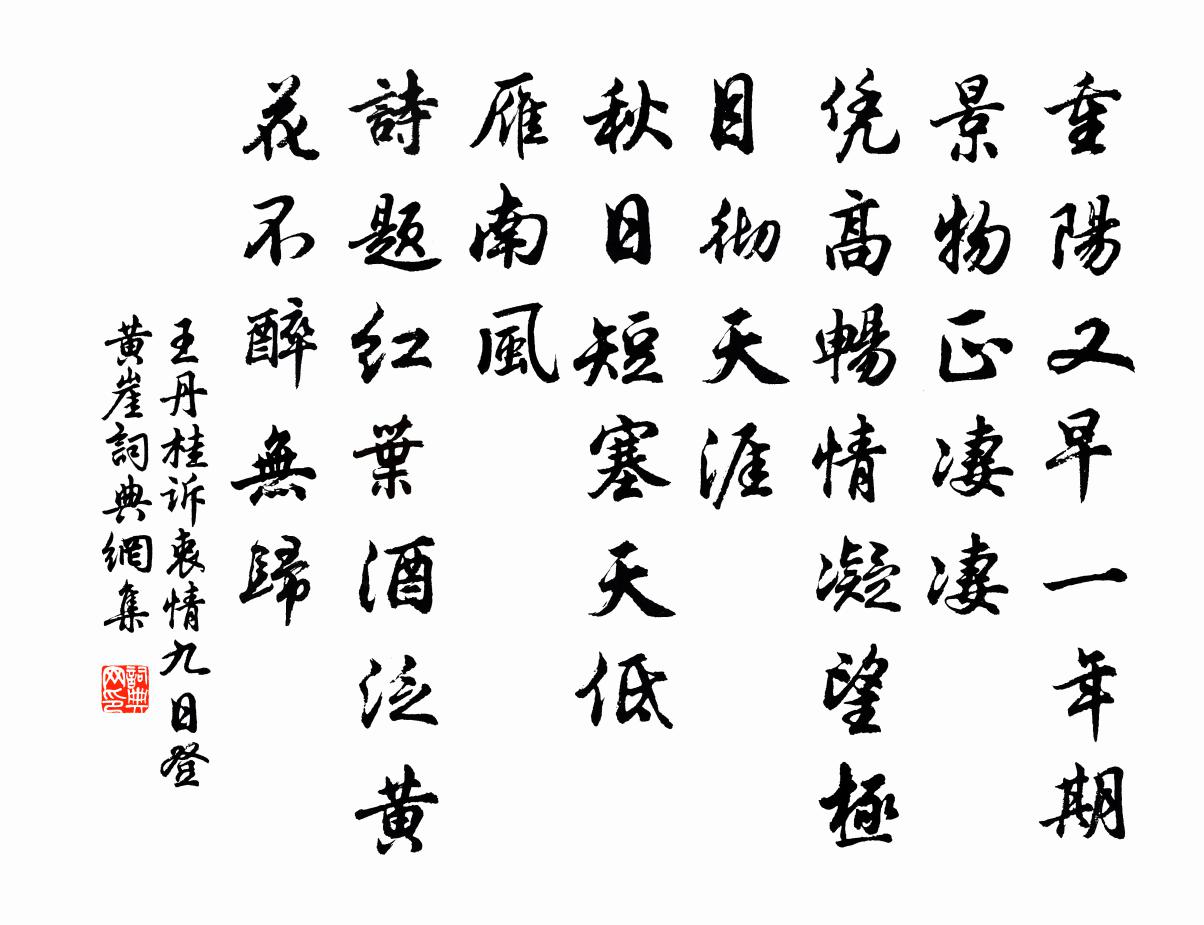 重陽又早一年期
景物正凄凄
凭高暢情凝望極
目彻天涯
秋日短塞天低
雁南風
詩题红葉酒泛黄
花不醉無歸
王丹桂诉衷情九日登
黄崖詞典網集
詞典网印